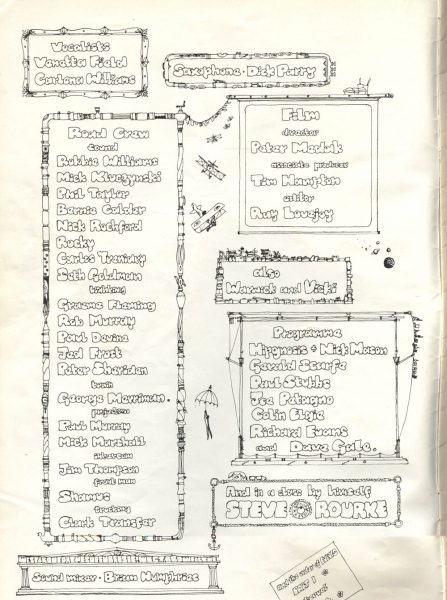 Vocalists
Venetta Field
Carlena Williams
Saxaphone · Dick Parry
Road Crew
sound
Robbie Williams
Mick Kluczynski
Phil Taylor
Bernie Calder
Nick Rochford
Rocky
Carlos Trenidry
Seth Goldman
Graeme Fleming
Rob Murray
Paul Devine
Ted Frust
Peter Sheridan
George Merriman.
projection
Paul Murray
Mick Marshall
Jim Thompson
front man
Shamus
trucking
Clark Transfer
Sound mixer · Brian Humphries
Film
director
Peter Medak
associate producer
Tim Hampton
editor
Ray Lovejoy
also
Warwick and Vicki
Programme
Hipgnosis + Nick Mason
Gerald Scarfe
Paul Stubbs
Joe Petagno
Colin Elgie
Richard Evans
and Dave Gale.
And in a class by himself
STEVE O'ROURKE